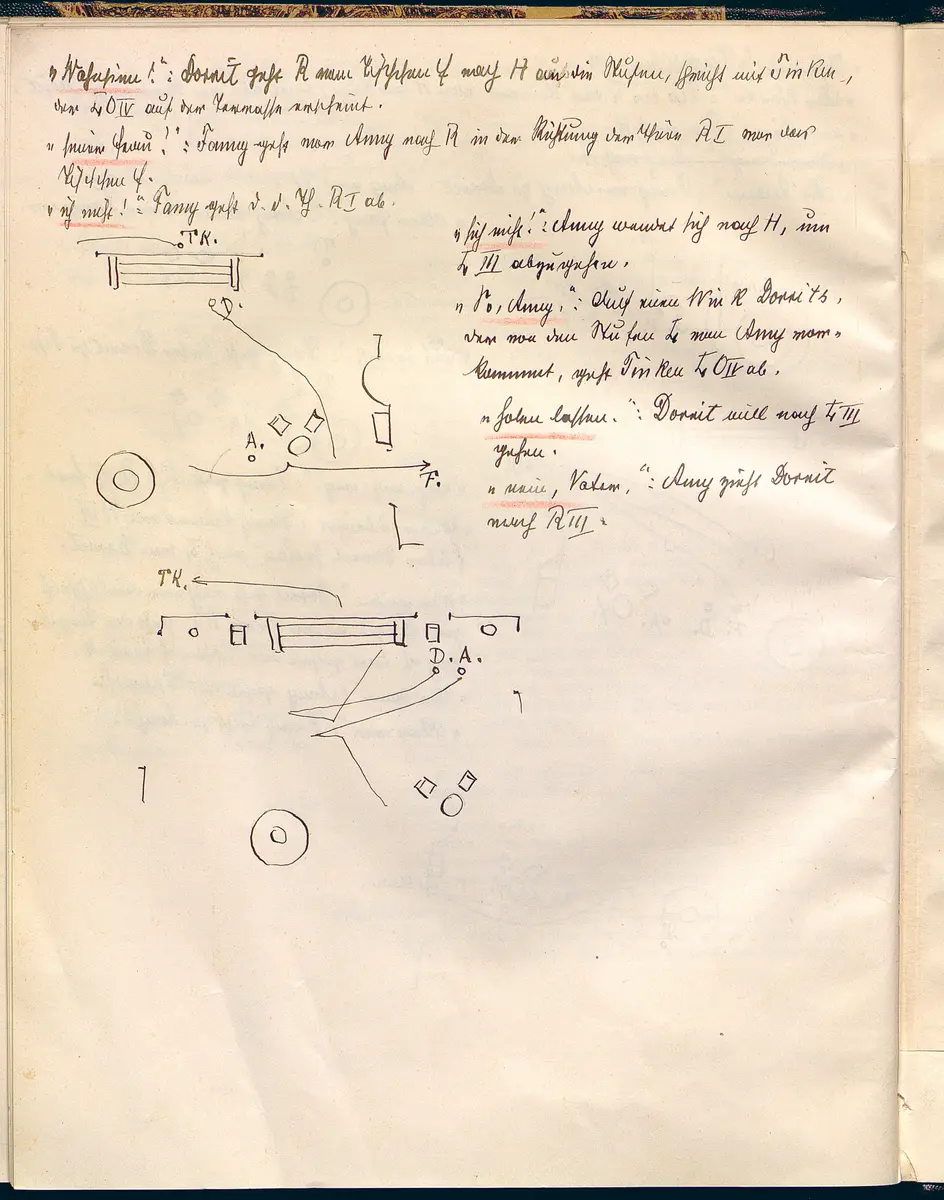 „Wahnsinn!“: Dorrit geht R vom Tischchen f nach H an die Stufen, spricht mit Tinken,
der L O IV auf der Terrasse erscheint.
„seiner Frau!“: Fanny geht vor Amy nach R in der Richtung der Thüre R I vor das
Tischchen f.
„ich nicht!“: Fanny geht d. d. Th. R I ab.
TK.
D.
A.
F.
„sich nicht!“: Amy wendet sich nach H, um
L III abzugehen.
„So, Amy,“: Auf einen Wink Dorrits,
der von den Stufen L von Amy vor-
kommt, geht Tinken L O IV ab.
„holen lassen.“: Dorrit will nach L III
gehen.
„nein, Vater,“: Amy zieht Dorrit
nach R III.
TK.
D. A.